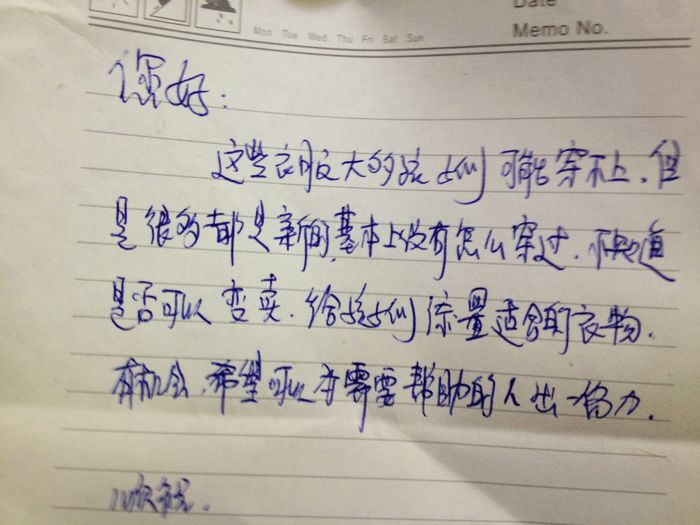 Date
Memo No.
Mon Tue Wed Thu Fri Sat Sun
您好：
这些衣服大的孩子们可能穿不上，但
是很多都是新的，基本上没有怎么穿过，不知道
是否可以变卖，给孩子们添置适合的衣物，
有机会，希望可以为需要帮助的人出一份力，
顺祝，